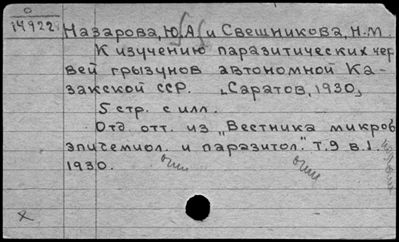 0
14922.
Назарова, Ю.А. и Свешникова, Н.М.
К изучению паразитических чер
вей грызунов автономной Ка-
закской ССР. „Саратов, 1930„
5 стр. с илл.
Отд. отт. из „Вестника микроб
эпидемиол. и паразитол." т.9 в.1.
1930.